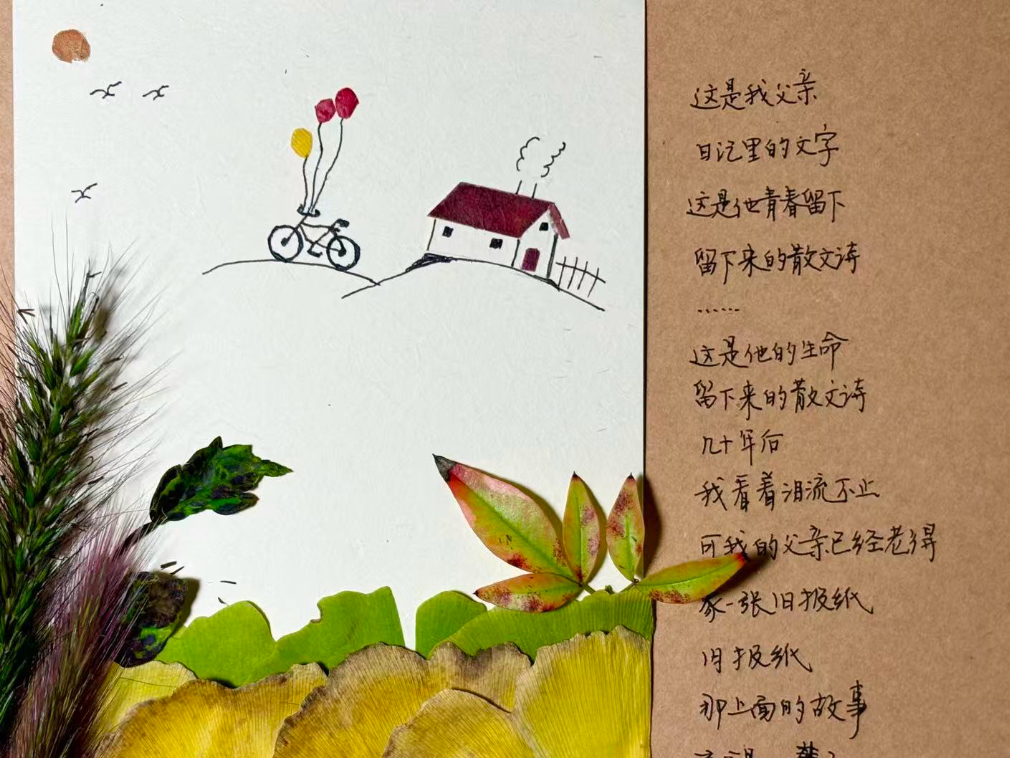 这是我父亲
日记里的文字
这是他青春留下
留下来的散文诗
……
这是他的生命
留下来的散文诗
几十年后
我看着泪流不止
可我的父亲已经老得
像一张旧报纸
旧报纸
那上面的故事